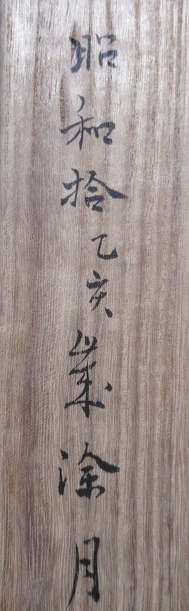 昭和拾乙亥歳涂月